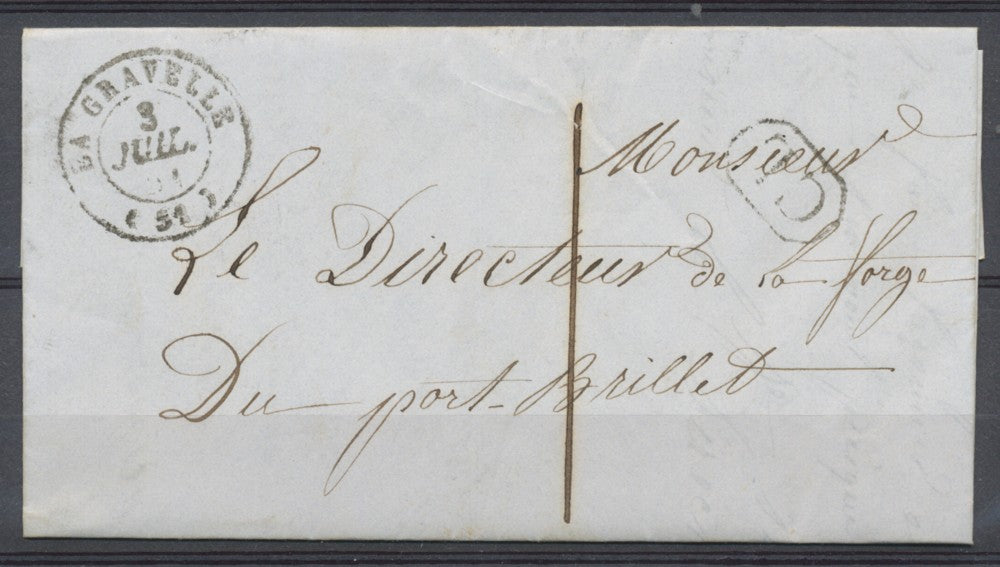 LA GRAVELLE
3
JUIL.
(51)
Monsieur
Le Directeur de la forge
Du port-Brillet